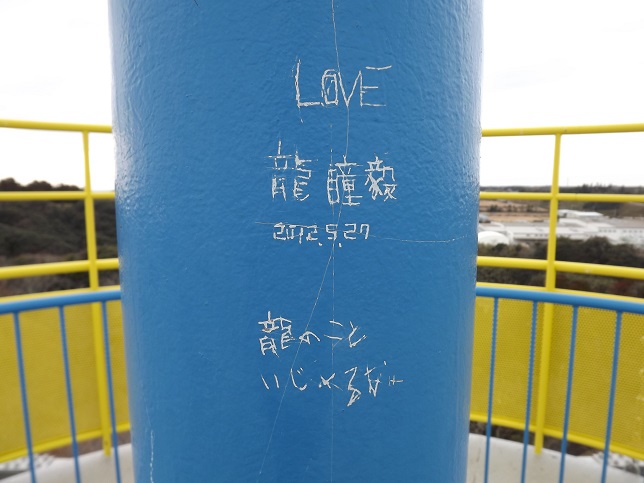 LOVE
龍 瞳 毅
2012.9.27
龍のこと
いじめるなー